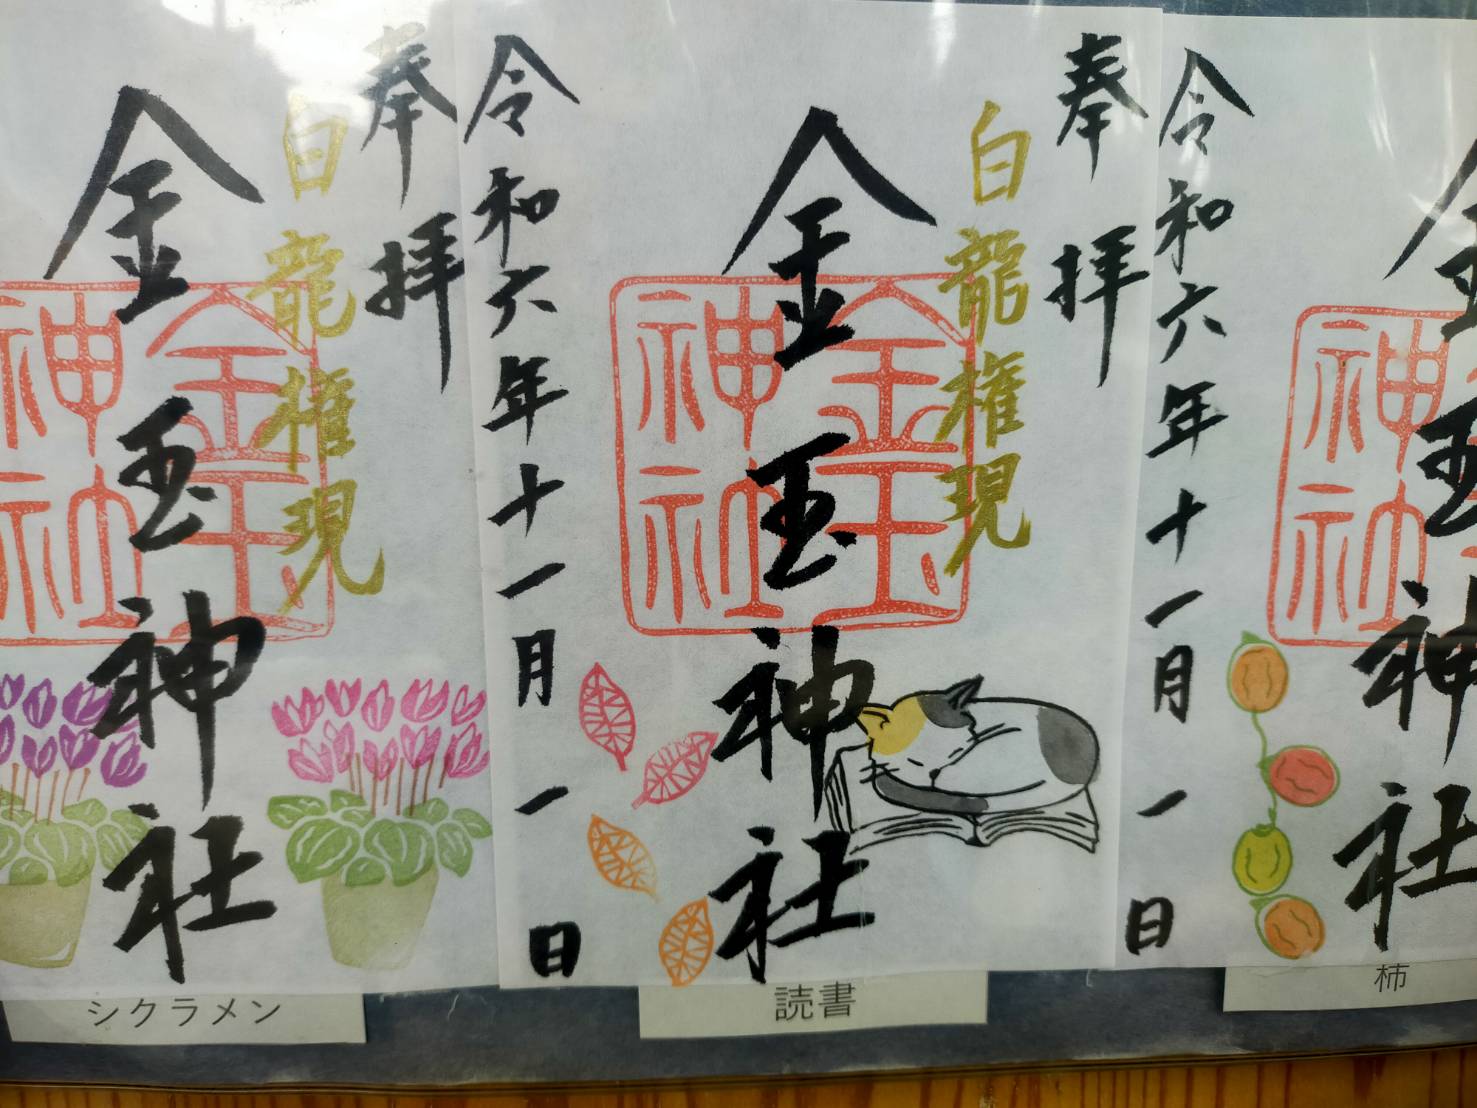 奉拝
白龍権現
金玉神社
金玉神社
シクラメン
奉拝
白龍権現
金玉神社
金玉神社
令和六年十一月一日
読書
金玉神社
令和六年十一月一日
柿